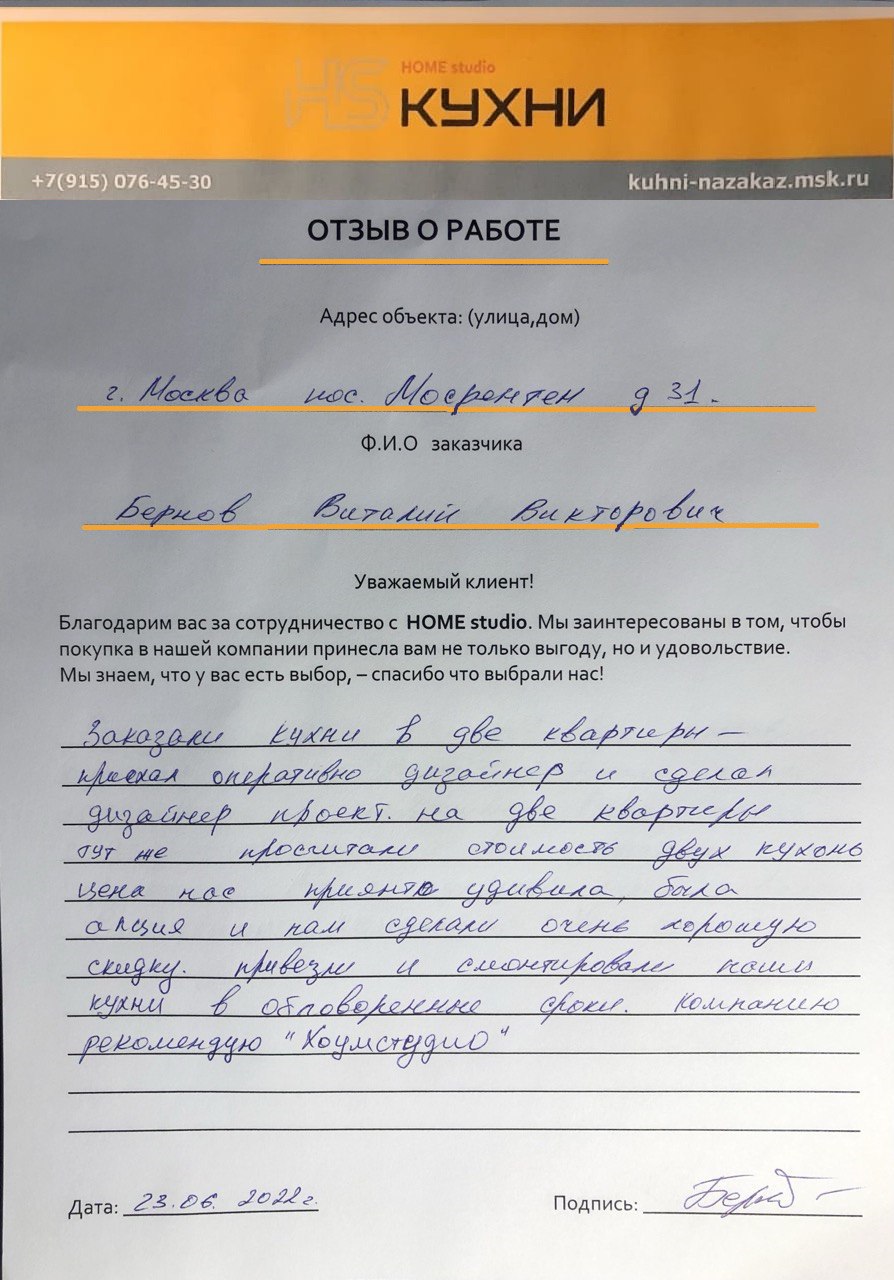 HS HOME studio
КУХНИ
+7(915) 076-45-30 kuhni-nazakaz.msk.ru
ОТЗЫВ О РАБОТЕ
Адрес объекта: (улица,дом)
г. Москва пос. Мосрентген д 31.
Ф.И.О заказчика
Бернов Виталий Викторович
Уважаемый клиент!
Благодарим вас за сотрудничество с HOME studio. Мы заинтересованы в том, чтобы
покупка в нашей компании принесла вам не только выгоду, но и удовольствие.
Мы знаем, что у вас есть выбор, – спасибо что выбрали нас!
Заказали кухни в две квартиры –
приехал оперативно дизайнер и сделал
дизайнер проект. на две квартиры
тут же просчитали стоимость двух кухонь
цена нас приянто удивила, была
акция и нам сделали очень хорошую
скидку. привезли и смонтировали наши
кухни в обговоренные сроки. Компанию
рекомендую "Хоумстудио"
Дата: 23.06. 2022г. Подпись: